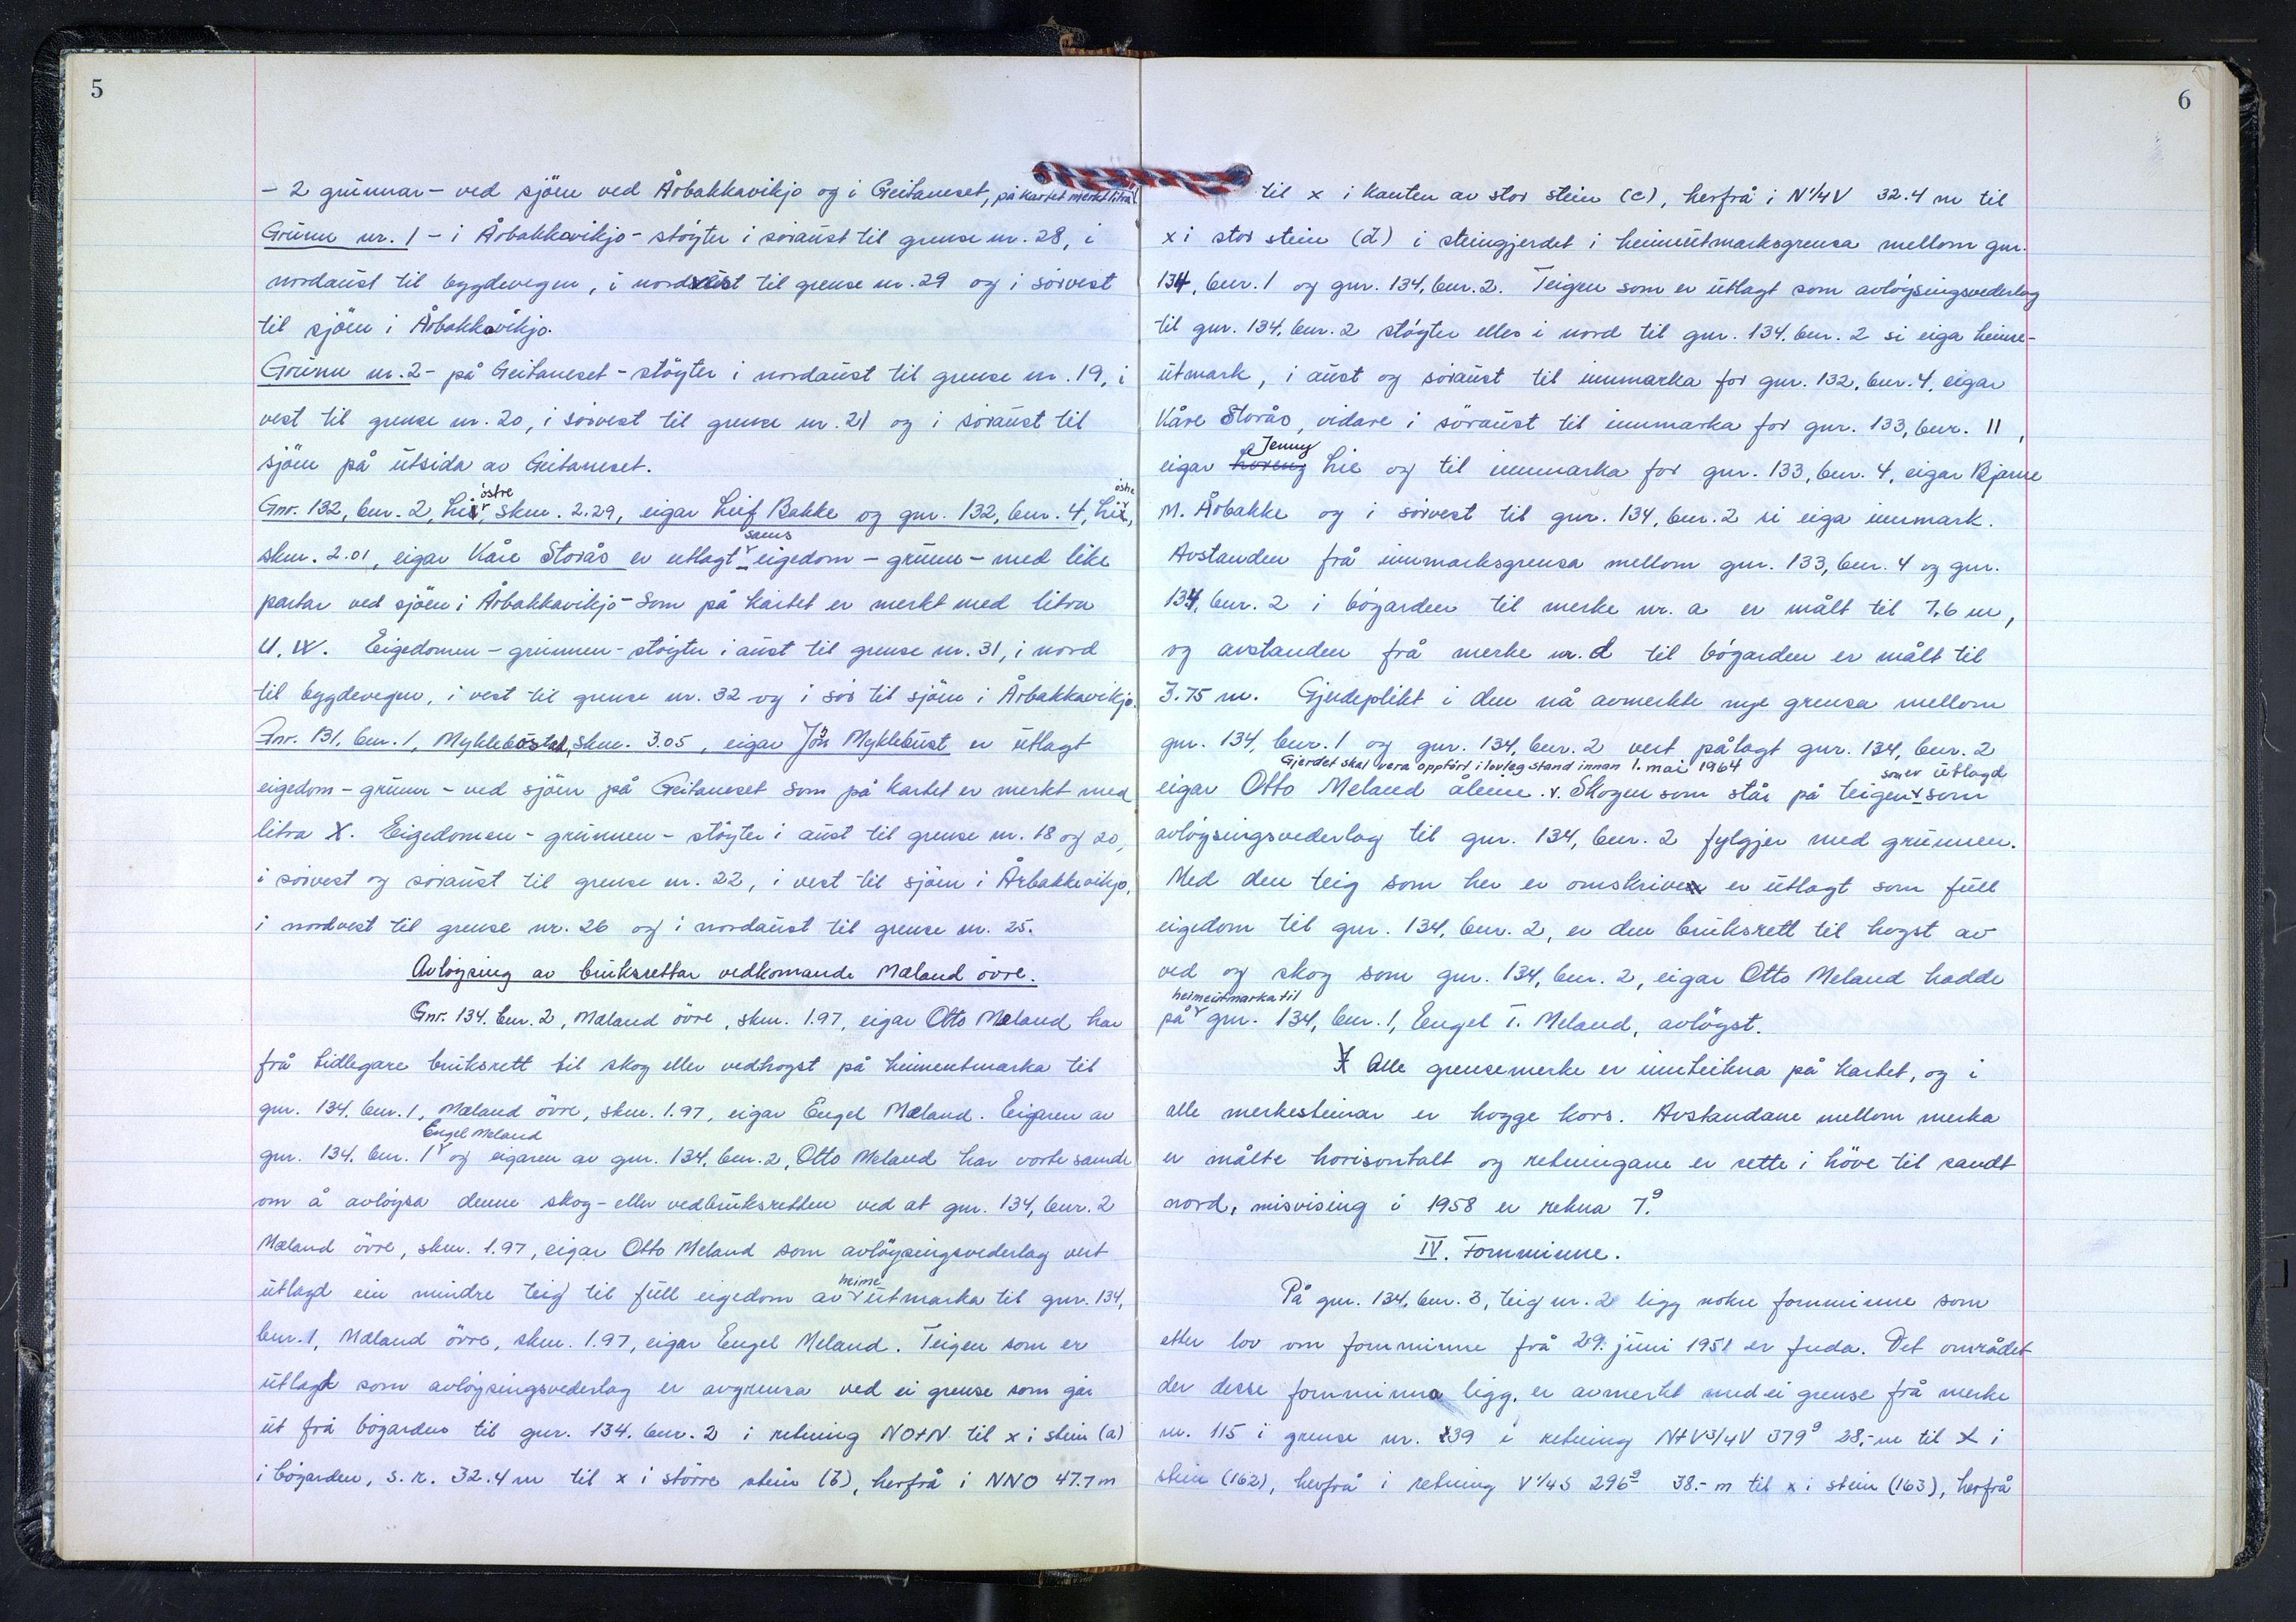 5
- 2 grunnar - ved sjöen ved Årbakkavikjo og i Geitaneset, på kartet merkt litra
Grunn nr. 1 - i Årbakkavikjo - stöyter i söraust til grense nr. 28, i
nordaust til bygdevegen, i nordvest til grense nr. 29 og i sörvest
til sjöen i Årbakkavikjo.
Grunn nr. 2 - på Geitaneset - stöyter i nordaust til grense nr. 19, i
vest til grense nr. 20, i sörvest til grense nr. 21 og i söraust til
sjöen på utsida av Geitaneset.
Gnr. 132, bnr. 2, Lie östre, skm. 2.29, eigar Leif Bakke og gnr. 132, bnr. 4, Lie östre,
skm. 2.01, eigar Kåre Storås er utlagt sams eigedom - grunn - med like
partar ved sjöen i Årbakkavikjo - som på kartet er merkt med litra
U. W. Eigedomen - grunnen - stöyter i aust til grense nr. 31, i nord
til bygdevegen, i vest til grense nr. 32 og i sör til sjöen i Årbakkavikjo.
Gnr. 131, bnr. 1, Myklebústad, skm. 3.05, eigar Jon Myklebust er utlagt
eigedom - grunn - ved sjöen på Geitaneset som på kartet er merkt med
litra X. Eigedomen - grunnen - stöyter i aust til grense nr. 18 og 20,
i sörvest og söraust til grense nr. 22, i vest til sjöen i Årbakkavikjo,
i nordvest til grense nr. 26 og i nordaust til grense nr. 25.
Avlöysing av bruksrettar vedkomande Mæland övre.
Gnr. 134. bnr. 2, Mæland övre, skm. 1.97, eigar Otto Meland har
frå tidlegare bruksrett til skog eller vedhogst på heimeutmarka til
gnr. 134. bnr. 1, Mæland övre, skm. 1.97, eigar Engel Meland. Eigaren av
gnr. 134. bnr. 1 Engel Meland og eigaren av gnr. 134. bnr. 2, Otto Meland har vorte samde
om å avlöysa denne skog- eller vedbruksretten ved at gnr. 134, bnr. 2
Mæland övre, skm. 1.97, eigar Otto Meland som avlöysingsvederlag vert
utlagd ein mindre teig til full eigedom av heimeutmarka til gnr. 134,
bnr. 1, Mæland övre, skm. 1.97, eigar Engel Meland. Teigen som er
utlagt som avlöysingsvederlag er avgrensa ved ei grense som går
ut frå bögarden til gnr. 134. bnr. 2 i retning NO+N til x i stein (a)
i bögarden, s. r. 32.4 m til x i större stein (b), herfrå i NNO 47.7 m
6
til x i kanten av stor stein (c), herfrå i N 1/4 V 32.4 m til
x i stor stein (d) i steingjerdet i heimeutmarksgrensa mellom gnr.
134, bnr. 1 og gnr. 134, bnr. 2. Teigen som er utlagt som avlöysingsvederlag
til gnr. 134, bnr. 2 stöyter elles i nord til gnr. 134. bnr. 2 si eiga heime-
utmark, i aust og söraust til innmarka for gnr. 132, bnr. 4, eigar
Kåre Storås, vidare i söraust til innmarka for gnr. 133, bnr. 11,
eigar Jenny Lie og til innmarka for gnr. 133, bnr. 4, eigar Bjarne
M. Årbakke og i sörvest til gnr. 134, bnr. 2 si eiga innmark.
Avstanden frå innmarksgrensa mellom gnr. 133, bnr. 4 og gnr.
134, bnr. 2 i bögarden til merke nr. a er målt til 7.6 m,
og avstanden frå merke nr. d til bögarden er målt til
3.75 m. Gjerdeplikt i den nå avmerkte nye grensa mellom
gnr. 134, bnr. 1 og gnr. 134, bnr. 2 vert pålagt gnr. 134, bnr. 2
Gjerdet skal vera oppfört i lovleg stand innan 1. mai 1964
eigar Otto Meland åleine. Skogen som står på teigen som er utlagd som
avlöysingsvederlag til gnr. 134, bnr. 2 fylgjer med grunnen.
Med den teig som her er omskriven er utlagt som full
eigedom til gnr. 134, bnr. 2, er den bruksrett til hogst av
ved og skog som gnr. 134, bnr. 2, eigar Otto Meland hadde
på heimeutmarka til gnr. 134, bnr. 1, Engel T. Meland, avlöyst.
Alle grensemerke er innteikna på kartet, og i
alle merkesteinar er hogge kors. Avstandane mellom merka
er målte horisontalt og retningane er sette i höve til sandt
nord, misvising i 1958 er rekna 7.g
IV. Fornminne.
På gnr. 134, bnr. 3, teig nr. 2 ligg nokre fornminne som
etter lov om fornminne frå 29. juni 1951 er freda. Det området
der desse fornminna ligg, er avmerkt med ei grense frå merke
nr. 115 i grense nr. 39 i retning N+V 3/4 V 379g 28,- m til x i
stein (162), herfrå i retning V 1/4 S 296g 38.- m til x i stein (163), herfrå